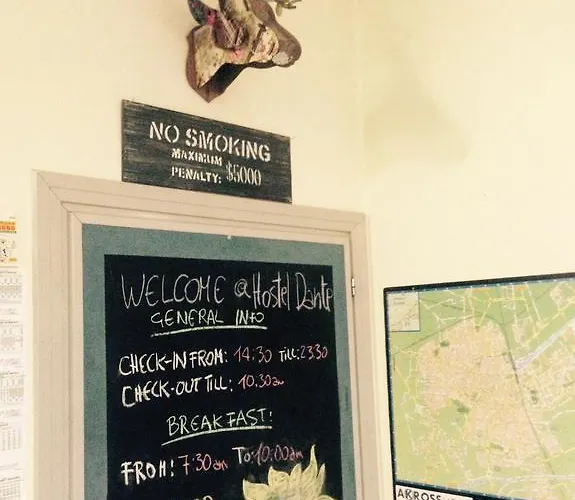 NO SMOKING
MAXIMUM
PENALTY: $5000
WELCOME @ Hostel Dante
GENERAL INFO
CHECK-IN FROM: 14:30 TILL: 23.30
CHECK-OUT TILL: 10.30am
BREAKFAST!
FROM: 7:30am TO: 10:00am
AKROSS